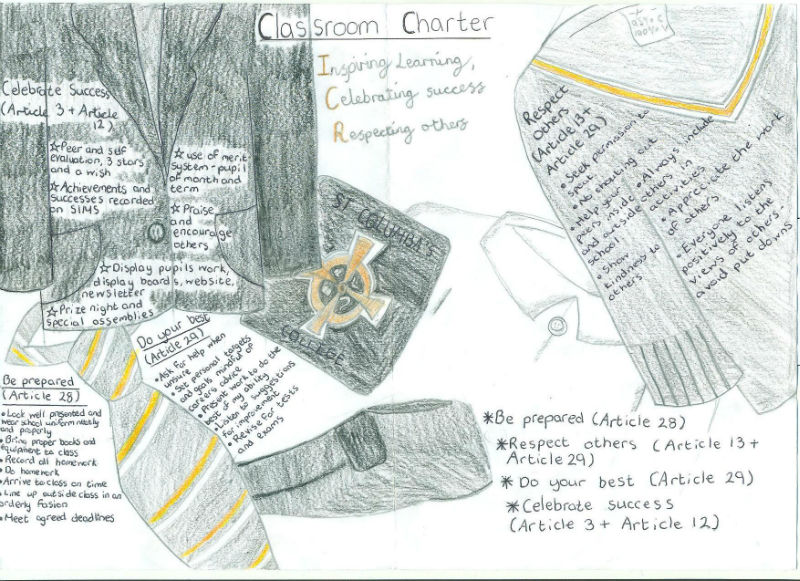 Classroom Charter
Inspiring Learning,
Celebrating success
Respecting others
Celebrate Success
(Article 3 + Article
12)
☆Peer and self
evaluation, 3 stars
and a wish
☆Achievements and
successes recorded
on SIMS
☆use of merit
system-pupil
of month and
term
☆Praise
and
encourage
others
☆Display pupils work,
display boards, website,
newsletter
☆Prize night and
special assemblies
ST COLUMBA'S
COLLEGE
Respect
Others
(Article 13+
Article 29)
• Seek permission to
speak
• No shouting out
• Help your
peers inside
and outside
school
• Show
kindness to
others
• Always include
others in
activities
• Appreciate the work
of others
• Everyone listens
positively to the
views of others-
avoid put downs
Do your best
(Article 29)
• Ask for help when
unsure
• Set personal targets
and goals mindful of
careers advice
• Present work to do the
best of my ability
• Listen to suggestions
for improvement
• Revise for tests
and exams
Be prepared
(Article 28)
• Look well presented and
wear school uniform neatly
and properly
• Bring proper books and
equipment to class
• Record all homework
• Do homework
• Arrive to class on time
• Line up outside class in an
orderly fasion
• Meet agreed deadlines
*Be prepared (Article 28)
*Respect others (Article 13 +
Article 29)
* Do your best (Article 29)
*Celebrate success
(Article 3 + Article 12)